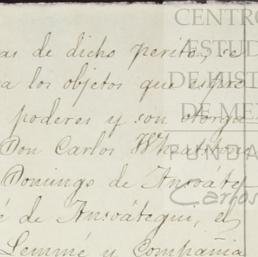 as de dicho perito, se
a los objetos que espre
poderes y son otorga
Don Carlos
Domingo de Ansoáte
é de Ansoátegui, el
Lemmé y Compañia
CENTRO
ESTUD
DE HIST
DE ME
FUNDA
Carlos